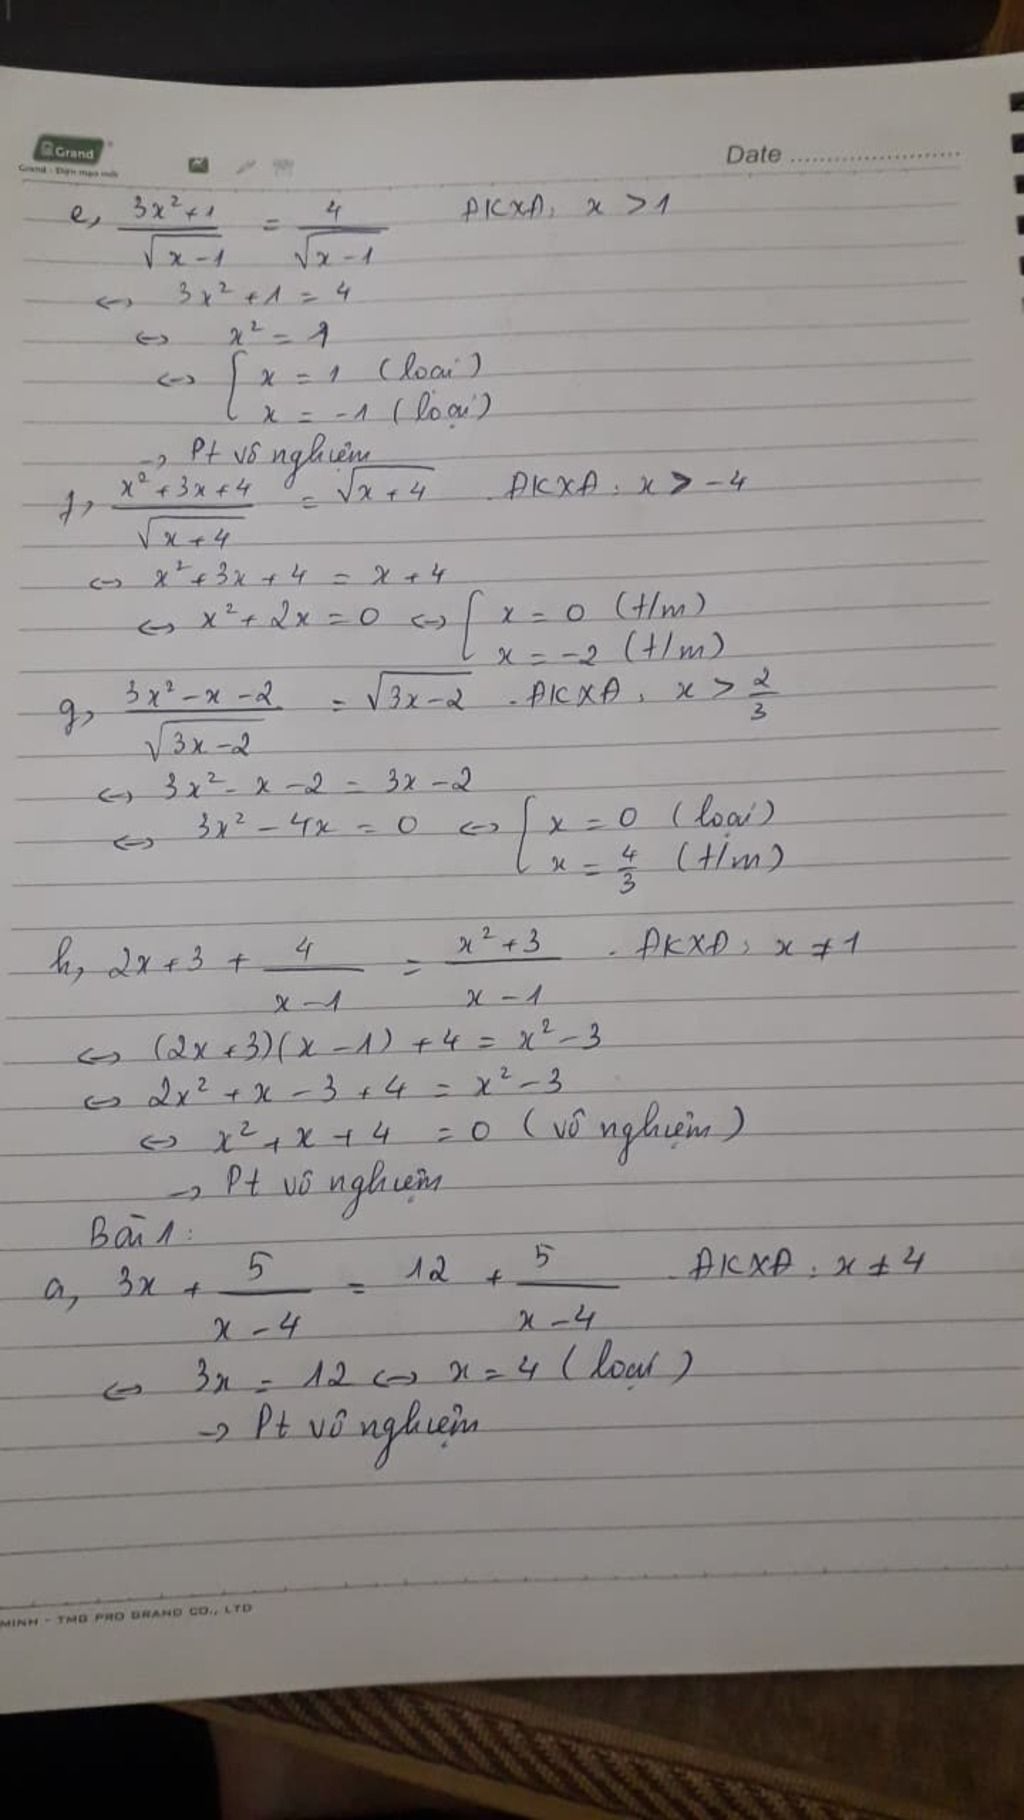 Grand
Date
e, (3x²+1)/√(x-1) = 4/√(x-1) ĐKXĐ: x > 1
<=> 3x² + 1 = 4
<=> x² = 1
<=> [ x = 1 (loại)
x = -1 (loại)
-> Pt vô nghiệm
f, (x²+3x+4)/√(x+4) = √(x+4) . ĐKXĐ: x > -4
<=> x² + 3x + 4 = x + 4
<=> x² + 2x = 0 <=> [ x = 0 (t/m)
x = -2 (t/m)
g, (3x²-x-2)/√(3x-2) = √(3x-2) . ĐKXĐ: x > 2/3
<=> 3x² - x - 2 = 3x - 2
<=> 3x² - 4x = 0 <=> [ x = 0 (loại)
x = 4/3 (t/m)
h, 2x + 3 + 4/(x-1) = (x²+3)/(x-1) . ĐKXĐ: x ≠ 1
<=> (2x+3)(x-1) + 4 = x² - 3
<=> 2x² + x - 3 + 4 = x² - 3
<=> x² + x + 4 = 0 (vô nghiệm)
-> Pt vô nghiệm
Bài 1:
a, 3x + 5/(x-4) = 12 + 5/(x-4) ĐKXĐ: x ≠ 4
<=> 3x = 12 <=> x = 4 (loại)
-> Pt vô nghiệm
MINH - TMG PRO GRAND CO., LTD